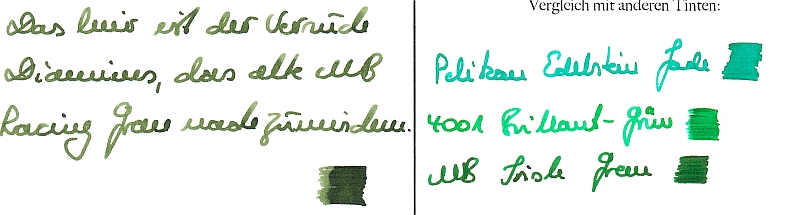 Das hier ist der Versuch
Diamines, das alte MB
Racing Green nachzumischen.
Vergleich mit anderen Tinten:
Pelikan Edelstein Jade
4001 Brillant-Grün
MB Irish Green